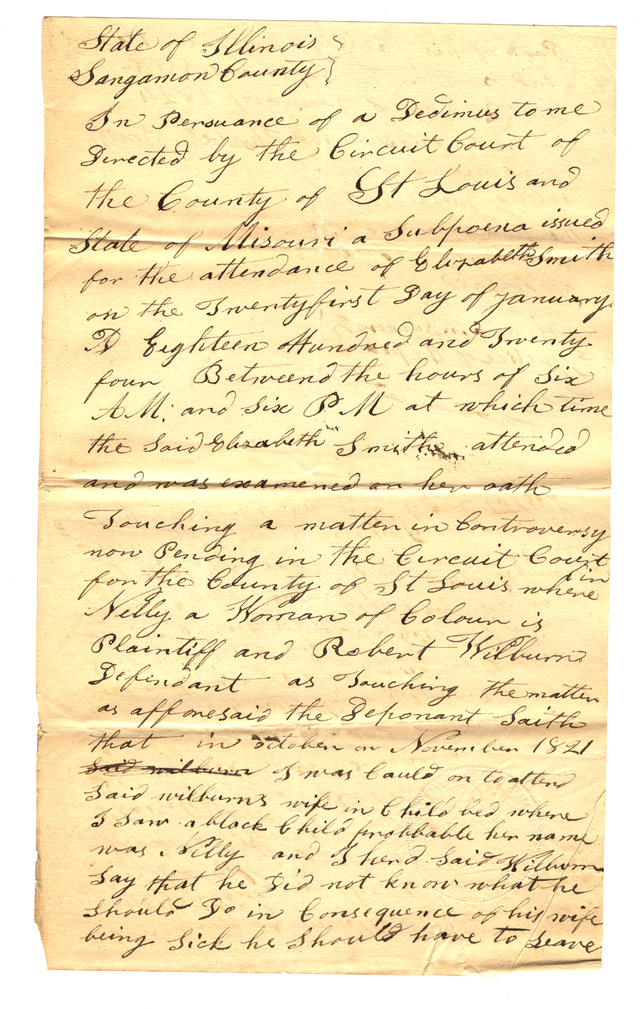 State of Illinois }
Sangamon County }
In Persuance of a Dedimus to me
Directed by the Circuit Court of
the County of St Louis and
State of Misouri a Subpoena issued
for the attendance of Elizabeth Smith
on the Twentyfirst Day of January
AD Eighteen Hundred and Twenty
four Betweend the hours of Six
A.M. and Six P M at which time
the Said Elizabeth Smith attended
and was examened on her oath
Touching a matter in Controversy
now Pending in the Circuit Court in
for the County of St Louis where
Nelly a Woman of Colour is
Plaintiff and Robert Wilburn
Defendant as Touching the matter
as afforesaid the Deponant Saith
that in october or November 1821
said wilburn I was Cauld on to attend
Said wilburns wife in Child bed where
I Saw a black Child probbable her name
was Nelly and I herd Said Wilburn
Say that he Did not know what he
Should Do in Consequence of his wife
being Sick he Should have to Leave